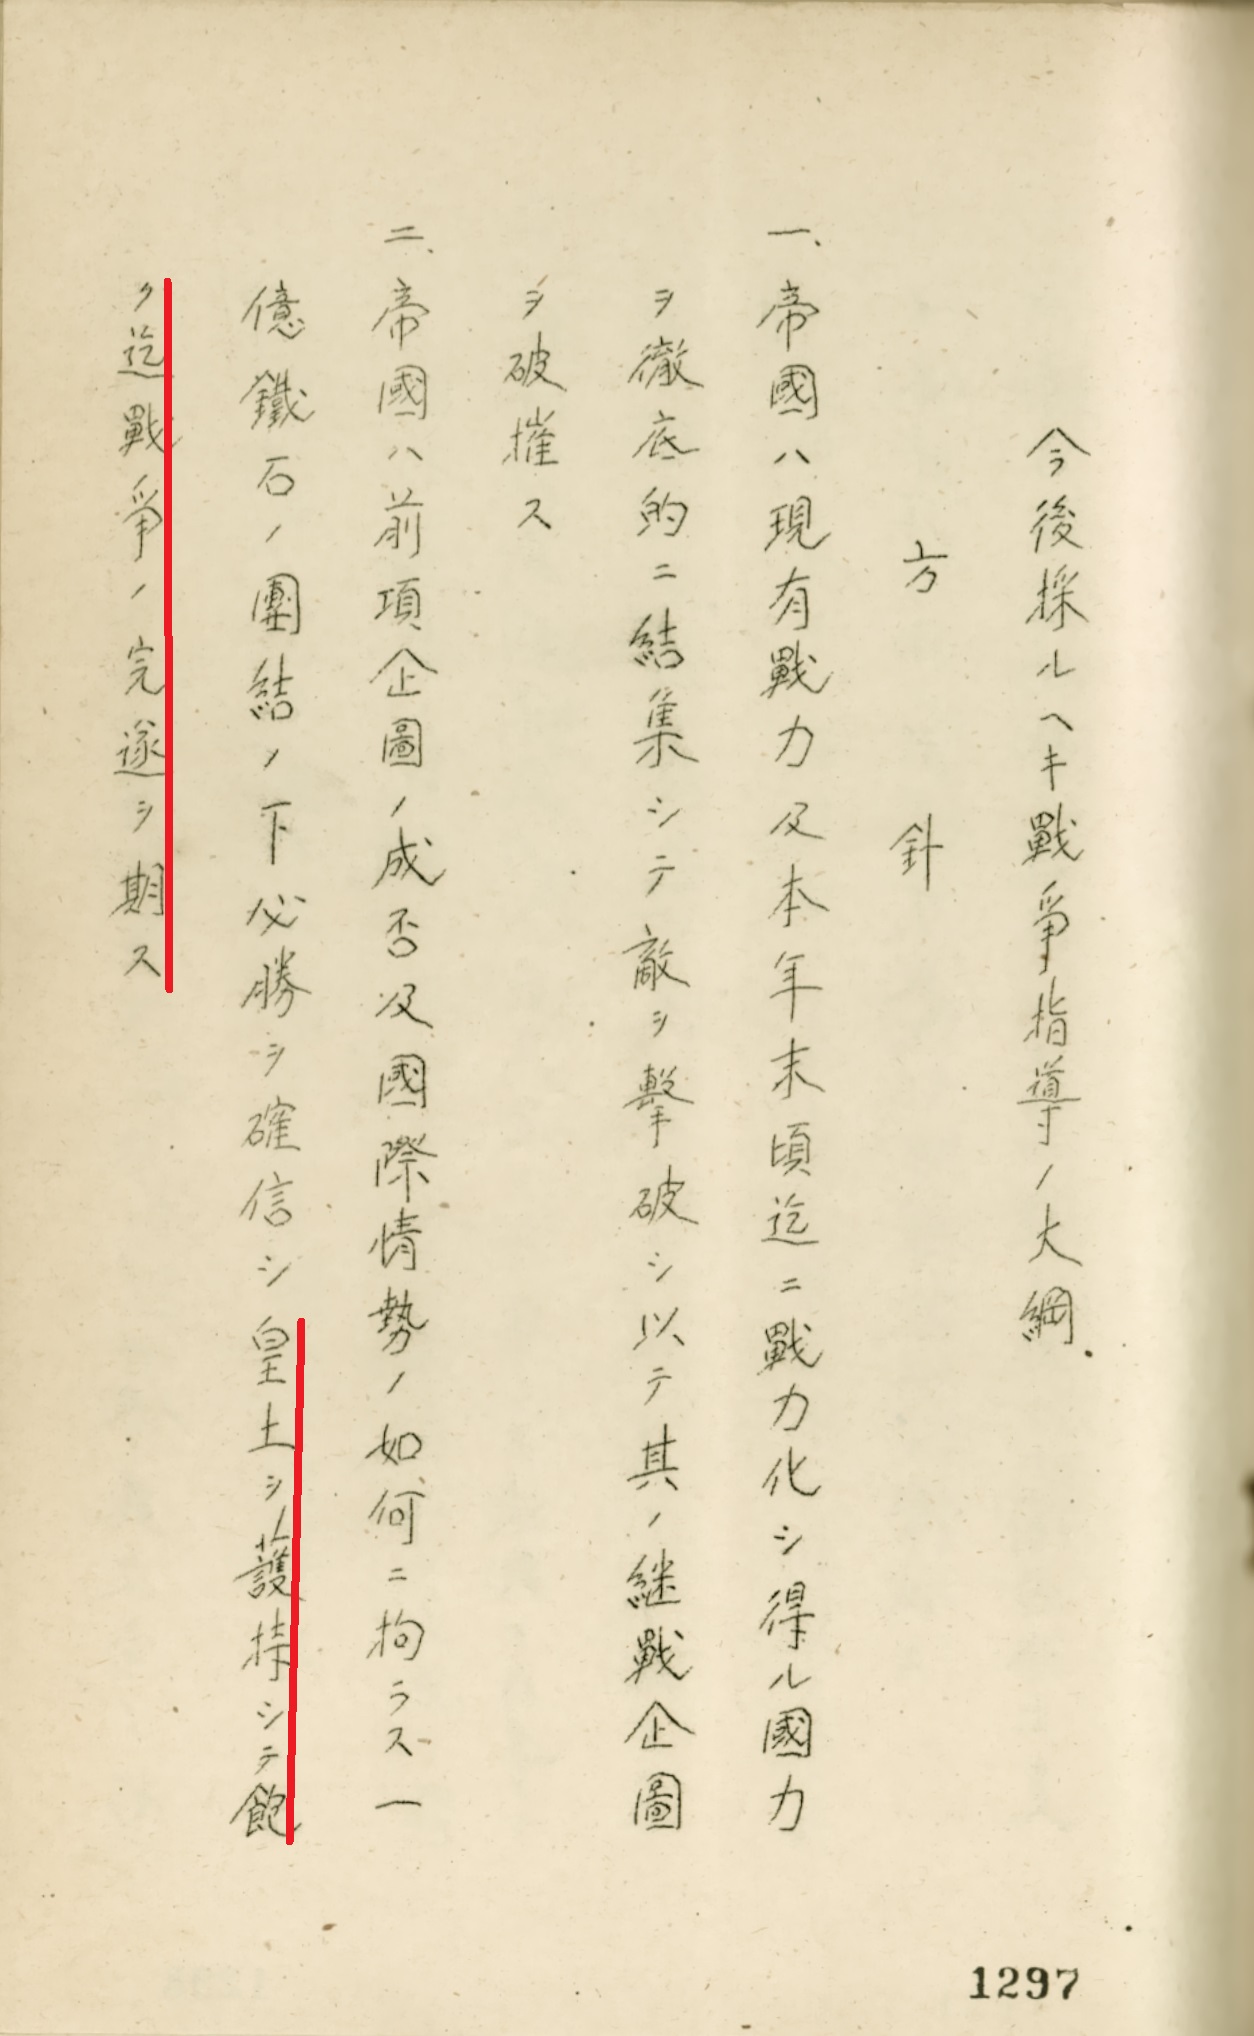 今後採ルヘキ戰爭指導ノ大綱
方針
一、帝國ハ現有戰力及本年末頃迄ニ戰力化シ得ル國力
ヲ徹底的ニ結集シテ敵ヲ擊破シ以テ其ノ継戰企圖
ヲ破摧ス
二、帝國ハ前項企圖ノ成否及國際情勢ノ如何ニ拘ラス一
億鐵石ノ團結ノ下必勝ヲ確信シ皇土ヲ護持シテ飽
ク迄戰爭ノ完遂ヲ期ス
1297